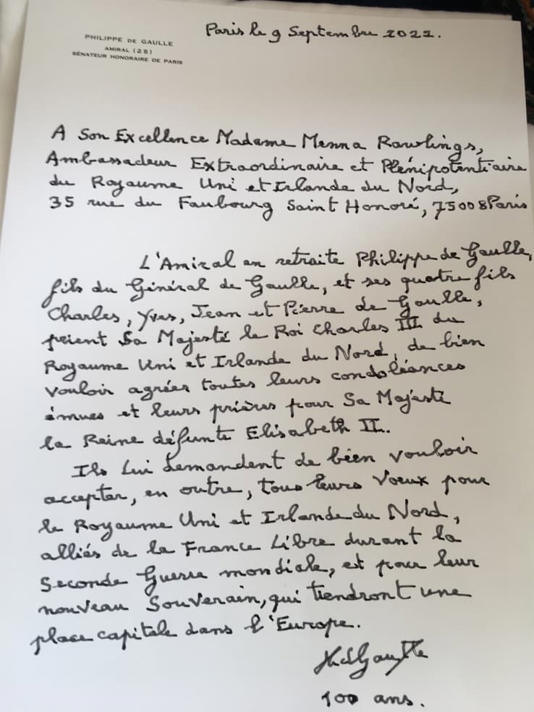 Paris le 9 Septembre 2022.
PHILIPPE DE GAULLE
AMIRAL (2S)
SÉNATEUR HONORAIRE DE PARIS
A Son Excellence Madame Menna Rawlings,
Ambassadeur Extraordinaire et Plénipotentiaire
du Royaume Uni et Irlande du Nord,
35 rue du Faubourg Saint Honoré, 75008 Paris
L'Amiral en retraite Philippe de Gaulle,
fils du Général de Gaulle, et ses quatre fils
Charles, Yves, Jean et Pierre de Gaulle,
prient Sa Majesté le Roi Charles III du
Royaume Uni et Irlande du Nord, de bien
vouloir agréer toutes leurs condoléances
émues et leurs prières pour Sa Majesté
la Reine défunte Elisabeth II.
Ils Lui demandent de bien vouloir
accepter, en outre, tous leurs Voeux pour
le Royaume Uni et Irlande du Nord,
alliés de la France Libre durant la
Seconde Guerre mondiale, et pour leur
nouveau Souverain, qui tiendront une
place capitale dans l'Europe.
PhdeGaulle
100 ans.